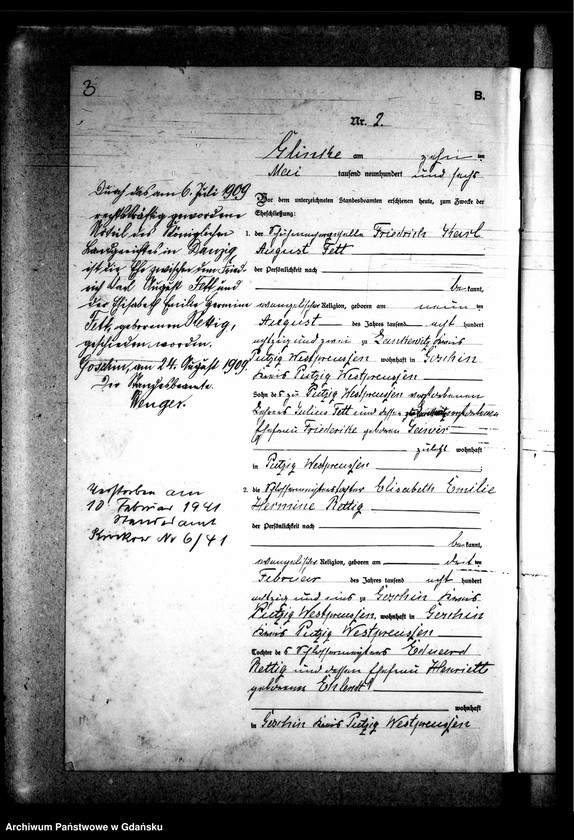 3
B.
Nr. 2.
am zehn ten
Mai tausend neunhundert und sechs
Vor dem unterzeichneten Standesbeamten erschienen heute, zum Zwecke der
Eheschließung:
1. der Friedrich Karl
August Fett
der Persönlichkeit nach
be kannt,
evangelischer Religion, geboren am neun ten
August des Jahres tausend acht hundert
achtzig und zwei zu Kreis
Putzig Westpreussen wohnhaft in Goschin
Kreis Putzig Westpreussen
Sohn des zu Putzig Westpreussen verstorbenen
Lehrers Julius Fett und dessen
Ehefrau Friederike geborenen
zuletzt wohnhaft
in Putzig Westpreussen
2. die Schlossermeisterstochter Elisabeth Emilie
Hermine Rettig
der Persönlichkeit nach
be kannt,
evangelischer Religion, geboren am drit ten
Februar des Jahres tausend acht hundert
achtzig und eins zu Goschin Kreis
Putzig Westpreussen, wohnhaft in Goschin
Kreis Putzig Westpreussen
Tochter des Schlossermeisters Eduard
Rettig und dessen Ehefrau Henriette
geborenen
wohnhaft
in Goschin Kreis Putzig Westpreussen
Durch das am 6. Juli 1909
rechtskräftig gewordene
Urteil des Königlichen
Landgerichtes in Danzig
ist die Ehe zwischen dem Fried-
rich Karl August Fett und
der Elisabeth Emilie Hermine
Fett, geborenen Rettig,
geschieden worden.
Goschin, am 24. August 1909.
Der Standesbeamte.
Wenger.
Verstorben am
10 Februar 1941
Standesamt
Krockow No 6/41
Archiwum Państwowe w Gdańsku